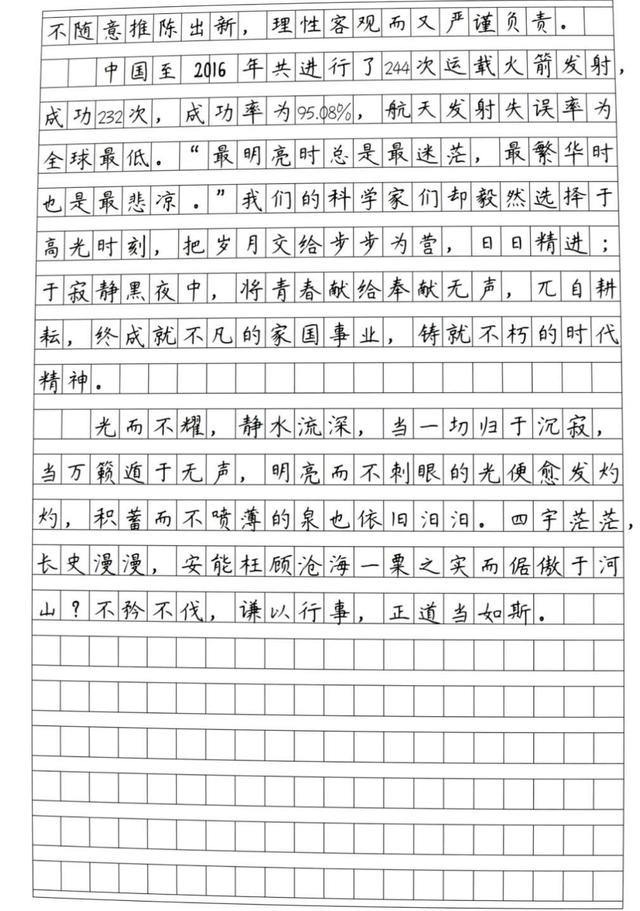 不随意推陈出新，理性客观而又严谨负责。
中国至2016年共进行了244次运载火箭发射，
成功232次，成功率为95.08%，航天发射失误率为
全球最低。“最明亮时总是最迷茫，最繁华时
也是最悲凉。”我们的科学家们却毅然选择于
高光时刻，把岁月交给步步为营，日日精进；
于寂静黑夜中，将青春献给奉献无声，兀自耕
耘，终成就不凡的家国事业，铸就不朽的时代
精神。
光而不耀，静水流深，当一切归于沉寂，
当万籁遁于无声，明亮而不刺眼的光便愈发灼
灼，积蓄而不喷薄的泉也依旧汩汩。四宇茫茫，
长史漫漫，安能枉顾沧海一粟之实而倨傲于河
山？不矜不伐，谦以行事，正道当如斯。